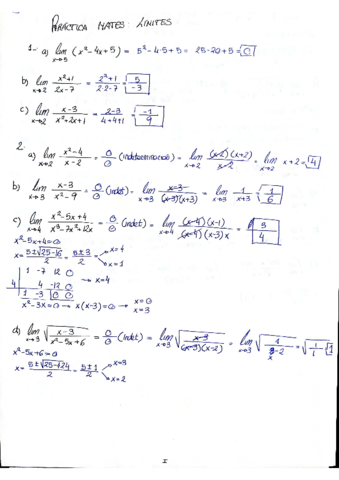 PRÁCTICA MATES: LÍMITES
1- a) lim x→5 (x²-4x+5) = 5²-4·5+5 = 25-20+5 = 0
b) lim x→2 x²+1/2x-7 = 2²+1/2·2-7 = 5/-3
c) lim x→2 x-3/x²+2x+1 = 2-3/4+4+1 = -1/9
2-
a) lim x→2 x²-4/x-2 = 0/0 (indeterminación) = lim x→2 (x-2)(x+2)/x-2 = lim x→2 x+2 = 4
b) lim x→3 x-3/x²-9 = 0/0 (indet) = lim x→3 x-3/(x-3)(x+3) = lim x→3 1/x+3 = 1/6
c) lim x→4 x²-5x+4/x³-7x²+12x = 0/0 (indet) = lim x→4 (x-4)(x-1)/(x-4)(x-3)x = 3/4
x²-5x+4=0
x= 5±√25-16/2 = 5±3/2 x=4 x=1
1 -7 12 0
4 4 -12 0 → x=4
1 -3 0 0
x²-3x=0 → x(x-3)=0 → x=0 x=3
d) lim x→3 √x-3/x²-5x+6 = 0/0 (indet) = lim x→3 √x-3/(x-3)(x-2) = lim x→3 √1/x-2 = √1/1 = 1
x²-5x+6=0
x= 5±√25-24/2 = 5±1/2 x=3 x=2